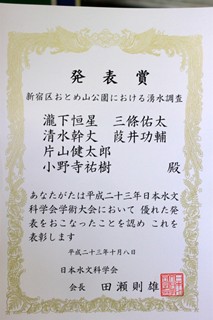 発表賞
新宿区おとめ山公園における湧水調査
瀧下恒星 三條佑太
清水幹丈 葭井功輔
片山健太郎
小野寺祐樹 殿
あなたがたは平成二十三年日本水文
科学会学術大会において 優れた発
表をおこなったことを認め これを
表彰します
平成二十三年十月八日
日本水文科学会
会長 田瀬則雄